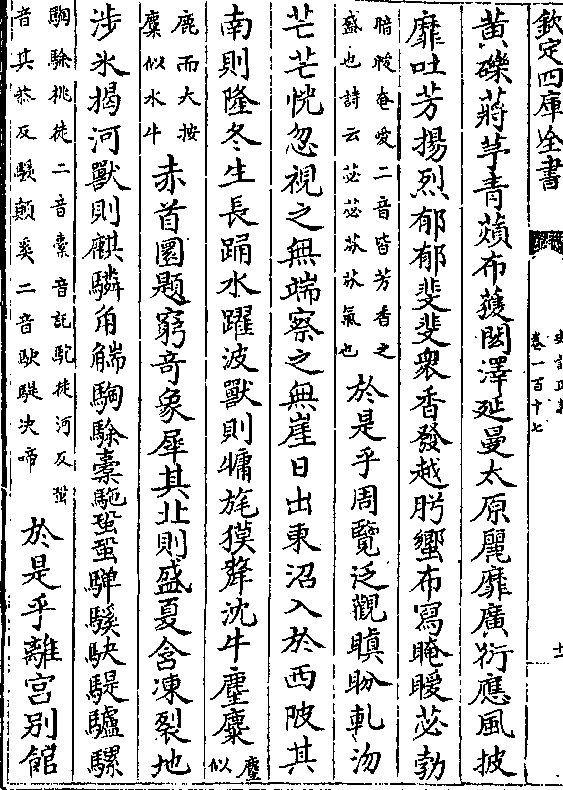 欽定四庫全書
史記正義
卷一百十七
十
黃礫蔣芧青薠布濩閎澤延曼太原麗靡廣衍應風披
靡吐芳揚烈郁郁斐斐衆香發越肸蠁布寫晻曖苾勃
暗曖奄愛二音皆芳香之
盛也詩云苾苾芬芬氣也
於是乎周覽泛觀瞋盼軋沕
芒芒恍忽視之無端察之無崖日出東沼入於西陂其
南則隆冬生長踊水躍波獸則㺎旄獏犛沈牛麈麋
麈似
鹿而大按
麋似水牛
赤首圜題窮奇象犀其北則盛夏含凍裂地
涉氷揭河獸則麒驎角䚎騊駼橐駞蛩蛩驒騱駃騠驢騾
騊駼桃徒二音橐音託駞徒河反蛩
音其恭反驒顛奚二音駃騠决啼
於是乎離宮别館